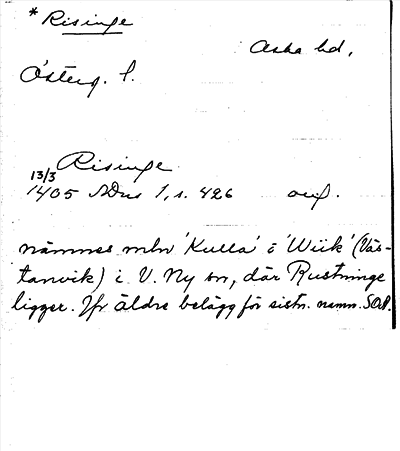 * Risinge
Aska hd,
Österg. l.
Risinge
13/3
1405 SDns 1, s. 426 avf.
nämnes mln 'Kulla' i 'Wiik' (Väs-
tanvik) i V. Ny sn, där Rustninge
ligger. Jfr äldre belägg för sistn. namn. SOÄ.